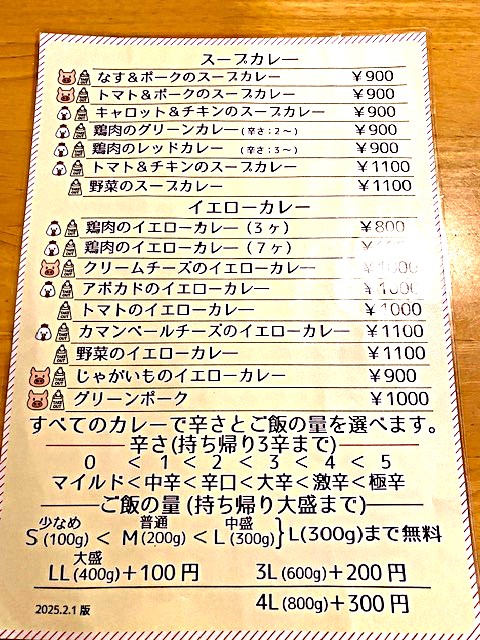 スープカレー
なす&ポークのスープカレー ¥900
トマト&ポークのスープカレー ¥900
キャロット&チキンのスープカレー ¥900
鶏肉のグリーンカレー(辛さ:2〜) ¥900
鶏肉のレッドカレー (辛さ:3〜) ¥900
トマト&チキンのスープカレー ¥1100
野菜のスープカレー ¥1100
イエローカレー
鶏肉のイエローカレー(3ヶ) ¥800
鶏肉のイエローカレー(7ヶ)
クリームチーズのイエローカレー ¥1000
アボカドのイエローカレー ¥1000
トマトのイエローカレー ¥1000
カマンベールチーズのイエローカレー ¥1100
野菜のイエローカレー ¥1100
じゃがいものイエローカレー ¥900
グリーンポーク ¥1000
すべてのカレーで辛さとご飯の量を選べます。
辛さ(持ち帰り3辛まで)
0 < 1 < 2 < 3 < 4 < 5
マイルド<中辛<辛口<大辛<激辛<極辛
ご飯の量(持ち帰り大盛まで)
少なめ 普通 中盛
S(100g) < M(200g) < L(300g)}L(300g)まで無料
大盛
LL(400g)+100円 3L(600g)+200円
2025.2.1版 4L(800g)+300円